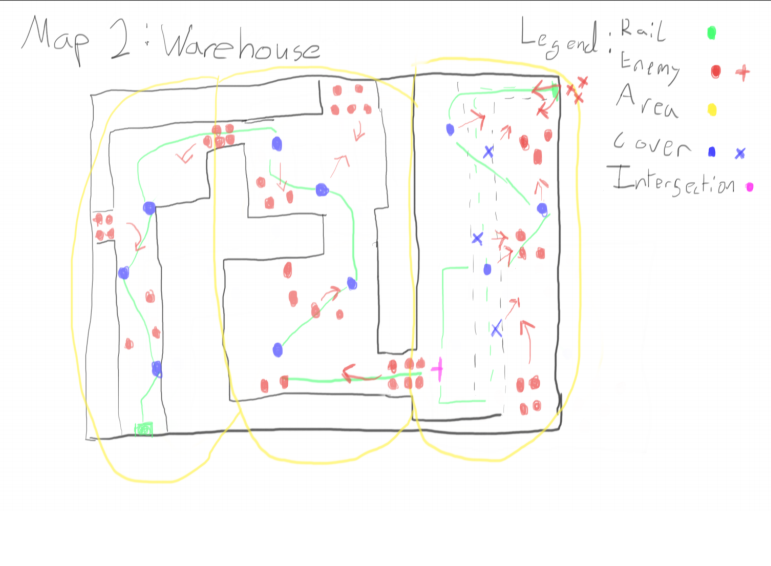 Map 2: Warehouse
Legend: Rail
Enemy
Area
Cover
Intersection